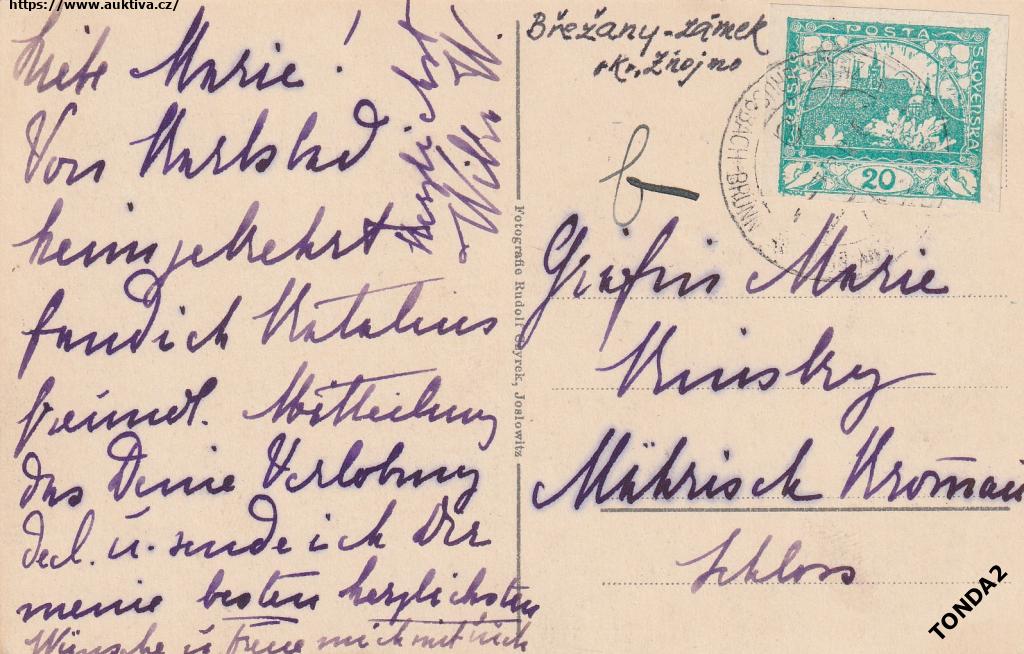 https://www.auktiva.cz/
Liebe Marie!
Von Karlsbad
heimgekehrt
fand ich Katalins
freundl. Mitteilung
das Deine Verlobung
decl. u. sende ich Dir
meine besten herzlichsten
Wünsche u freue mich mit Euch
Herzlichst
Břežany-zámek
okr. Znojmo
POSTA
ČESKO
SLOVENSKA
20
Fotografie Rudolf Czyrek, Joslowitz
Gräfin Marie
Kinsky
Mährisch Kromau
Schloss
TONDA2